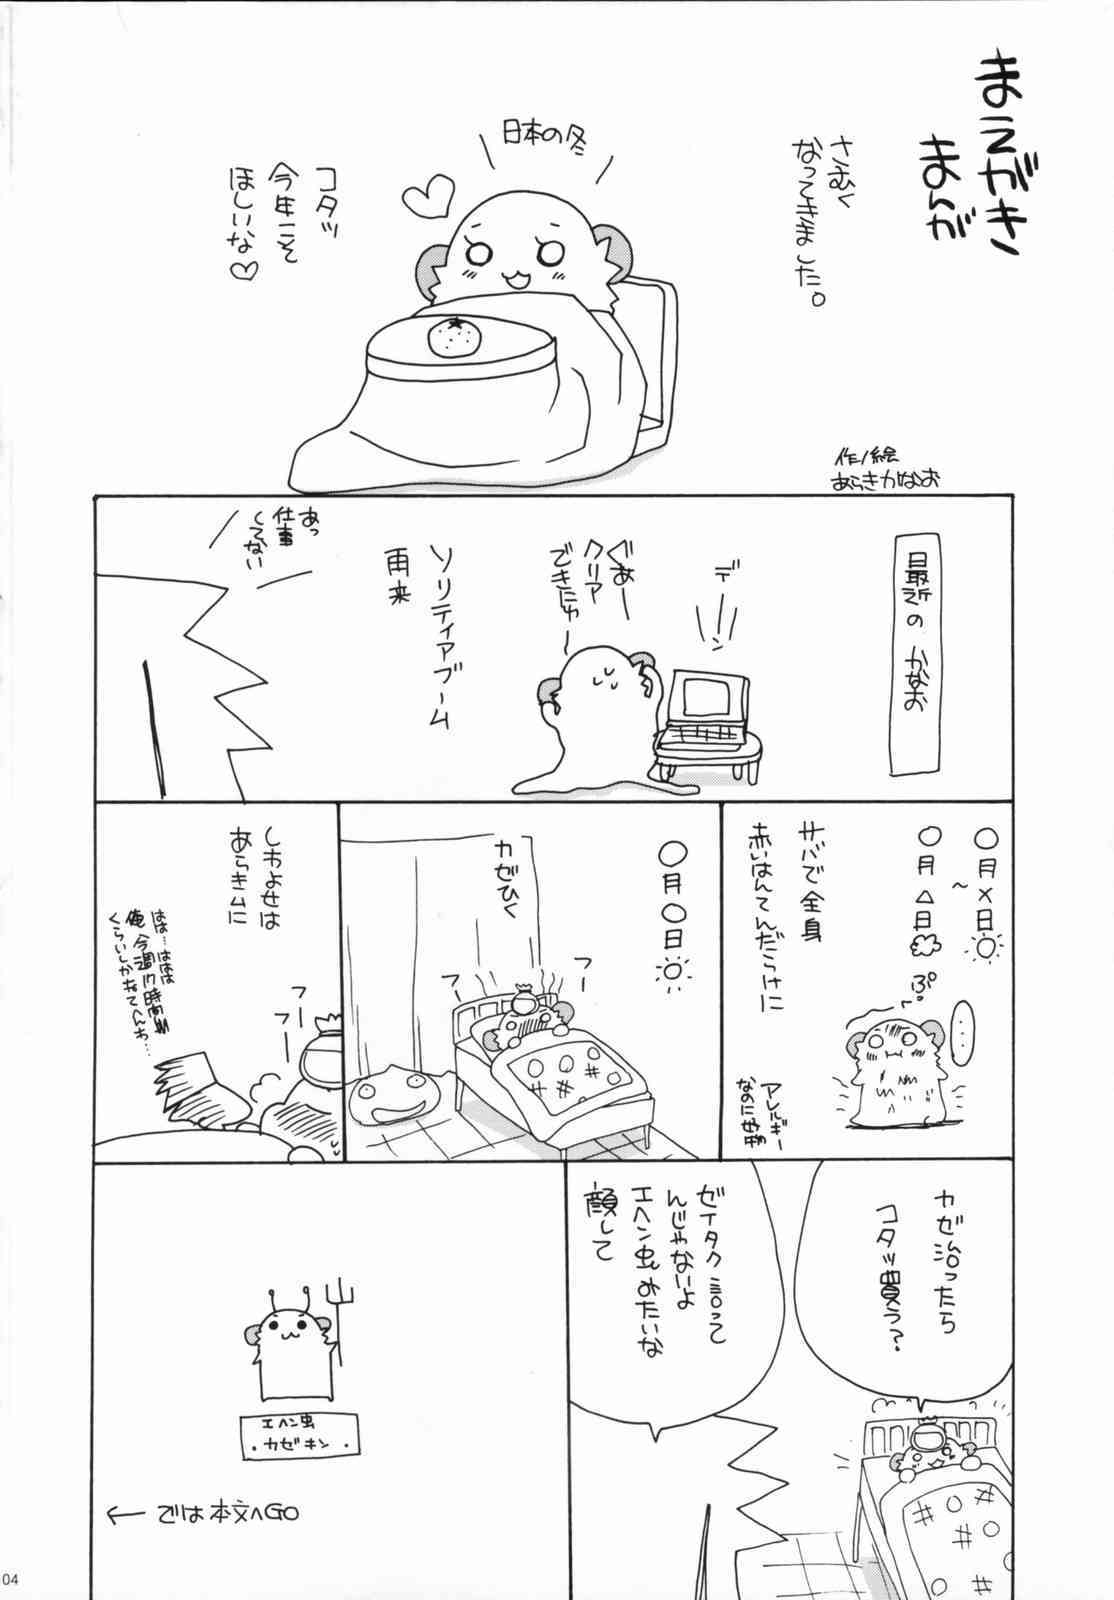 まえがき
まんが
さむく
なってきました。
日本の冬
コタツ
今年こそ
ほしいな♡
作/絵
あらきかなお
最近の かなお
デーン
ぐあー
クリア
できにゅー
ソリティアブーム
再来
あっ
仕事
してない
○月×日
~
○月△日
サバで全身
赤いはんてんだらけに
ぷ。
・・・・
アレルギー
なのに好物
○月○日
カゼひく
フー
フー
しわよせは
あらきムに
フー
フー
はは…ははは
俺、今週17時間
くらいしかねてへんわ…
カゼ治ったら
コタツ買う?
ゼイタク言って
んじゃないよ
エヘン虫みたいな
顔して
エヘン虫
・カゼキン・
← では本文へGO
04